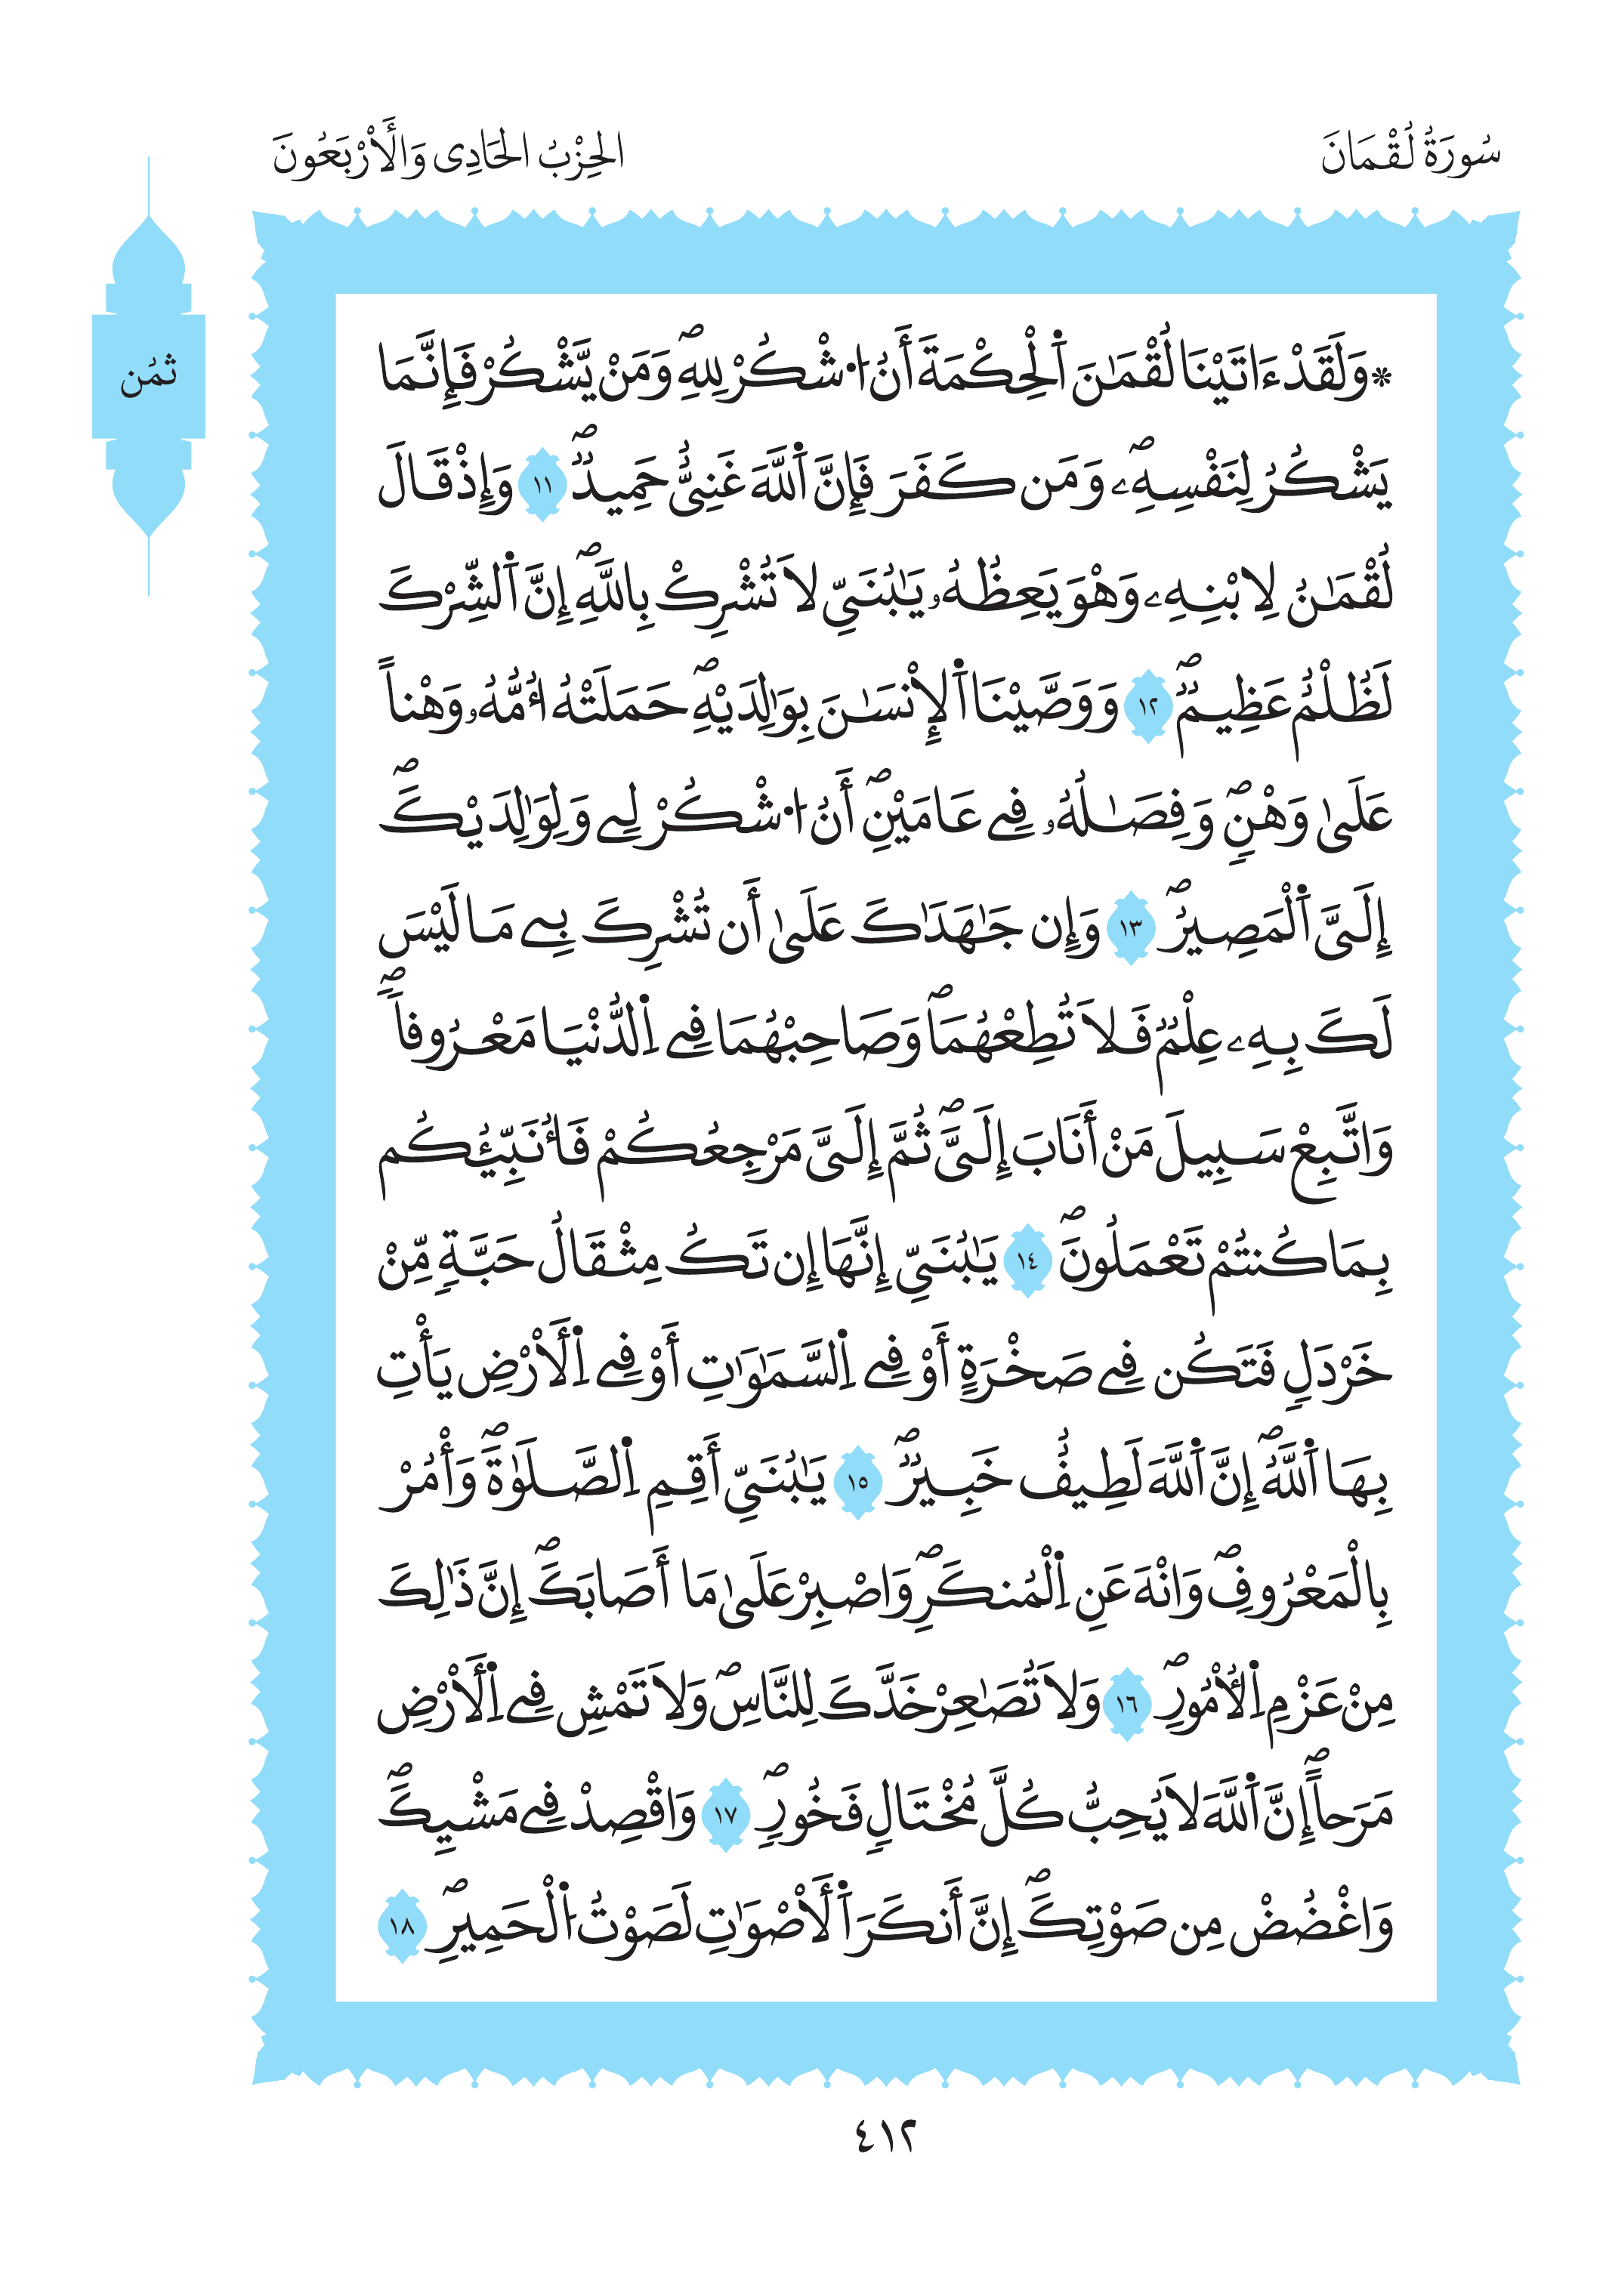 سُورَةُ لُقْمَانَ
الحِزْبُ الحَادِى وَالأَرْبَعُونَ
ثمُن
* وَلَقَدْ ءَاتَيْنَا لُقْمَٰنَ اَ۬لْحِكْمَةَ أَنُ اُ۟شْكُرْ لِلهِۖ وَمَنْ يَّشْكُرْ فَإِنَّمَا
يَشْكُرُ لِنَفْسِهِۦۖ وَمَن كَفَرَ فَإِنَّ اَ۬للَّهَ غَنِيٌّ حَمِيدٞۖ ١١ وَإِذْ قَالَ
لُقْمَٰنُ لِابْنِهِۦ وَهْوَ يَعِظُهُۥ يَٰبُنَيِّ لَا تُشْرِكْ بِاللَّهِۖ إِنَّ اَ۬لشِّرْكَ
لَظُلْمٌ عَظِيمٞۖ ١٢ وَوَصَّيْنَا اَ۬لْإِنسَٰنَ بِوَٰلِدَيْهِۖ حَمَلَتْهُ أُمُّهُۥ وَهْناً
عَلَىٰ وَهْنٖۖ وَفِصَٰلُهُۥ فِے عَامَيْنِۖ أَنُ اُ۟شْكُرْ لِے وَلِوَٰلِدَيْكَۖ
إِلَىَّ اَ۬لْمَصِيرُۖ ١٣ وَإِن جَٰهَدَٰكَ عَلَىٰ أَن تُشْرِكَ بِے مَا لَيْسَ
لَكَ بِهِۦ عِلْمٞ فَلَا تُطِعْهُمَاۖ وَصَاحِبْهُمَا فِے اِ۬لدُّنْيَا مَعْرُوفاًۖ
وَاتَّبِعْ سَبِيلَ مَنْ أَنَابَ إِلَىَّۖ ثُمَّ إِلَىَّ مَرْجِعُكُمْ فَأُنَبِّئُكُم
بِمَا كُنتُمْ تَعْمَلُونَۖ ١٤ يَٰبُنَيِّ إِنَّهَا إِن تَكُ مِثْقَالُ حَبَّةٖ مِّنْ
خَرْدَلٖ فَتَكُن فِے صَخْرَةٍ أَوْ فِے اِ۬لسَّمَٰوَٰتِ أَوْ فِے اِ۬لْأَرْضِ يَأْتِ
بِهَا اَ۬للَّهُۖ إِنَّ اَ۬للَّهَ لَطِيفٌ خَبِيرٞۖ ١٥ يَٰبُنَيِّ أَقِمِ اِ۬لصَّلَوٰةَۖ وَأْمُرْ
بِالْمَعْرُوفِۖ وَانْهَ عَنِ اِ۬لْمُنكَرِۖ وَاصْبِرْ عَلَىٰ مَا أَصَابَكَۖ إِنَّ ذَٰلِكَ
مِنْ عَزْمِ اِ۬لْأُمُورِۖ ١٦ وَلَا تُصَٰعِرْ خَدَّكَ لِلنَّاسِۖ وَلَا تَمْشِ فِے اِ۬لْأَرْضِ
مَرَحاًۖ إِنَّ اَ۬للَّهَ لَا يُحِبُّ كُلَّ مُخْتَالٖ فَخُورٖۖ ١٧ وَاقْصِدْ فِے مَشْيِكَۖ
وَاغْضُضْ مِن صَوْتِكَۖ إِنَّ أَنكَرَ اَ۬لْأَصْوَٰتِ لَصَوْتُ اُ۬لْحَمِيرِۖ ١٨
٤١٢